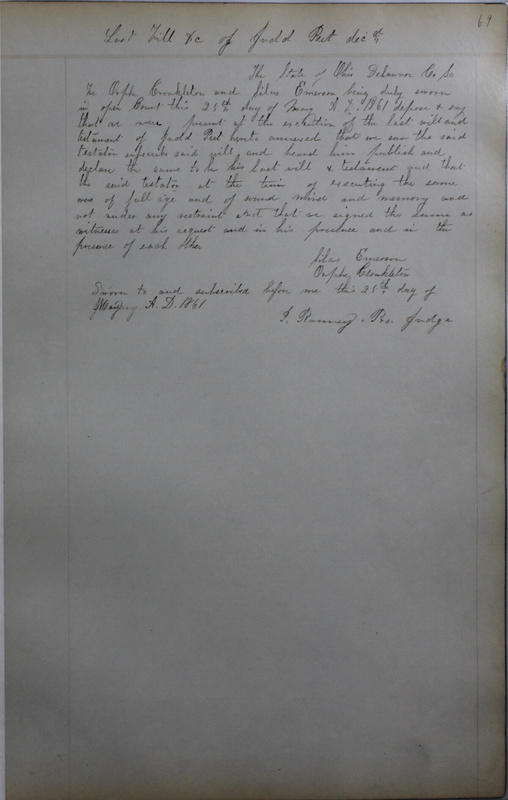 69
Last Will &c of Judd Peet dec'd
The State of Ohio Delaware Co. Ss
We Orpha Cronkleton and Silas Emerson being duly sworn
in open Court this 25th day of May A.D. 1861 depose & say
that we were present at the execution of the last will and
testament of Judd Peet hereto annexed that we saw the said
testator subscribe said will, and heard him publish and
declare the same to be his last will & testament and that
the said testator at the time of executing the same
was of full age and of sound mind and memory and
not under any restraint and that we signed the same as
witnesses at his request and in his presence and in the
presence of each other
Silas Emerson
Orpha Cronkleton
Sworn to and subscribed before me this 25th day of
May A.D. 1861
Ranney Pro. Judge